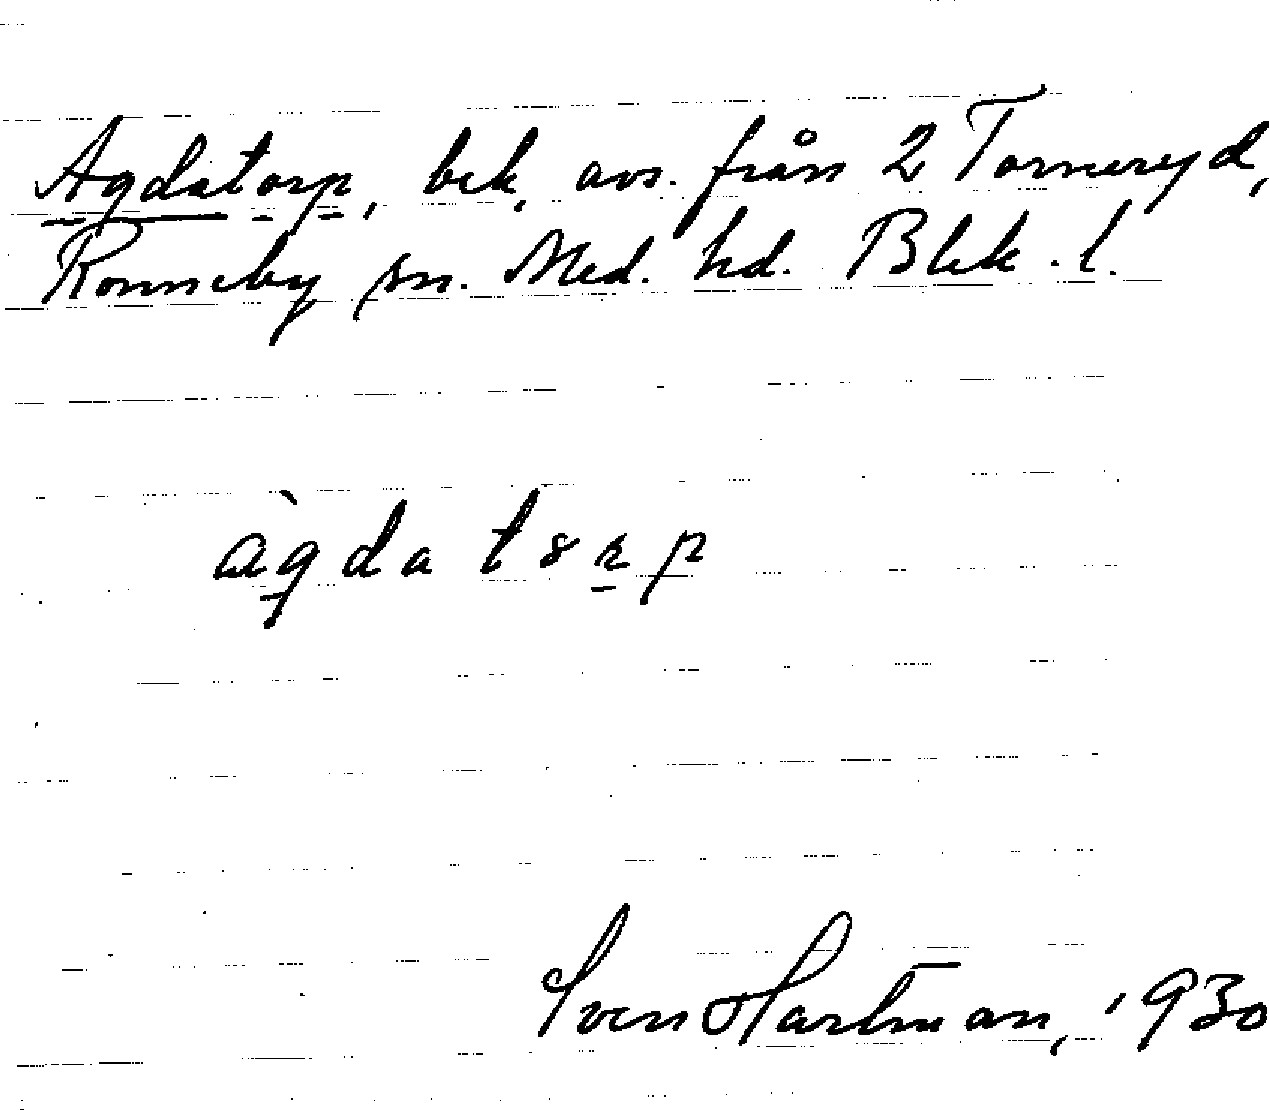 Agdatorp, bek, avs. från 2 Torneryd,
Ronneby sn. Med. hd. Blek. l.
àgdatsrp
Sven Hartman, 1930